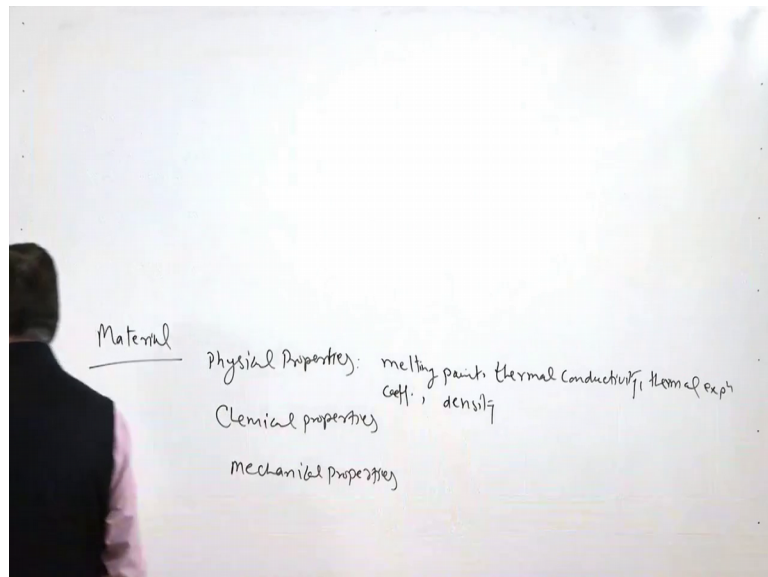 Material
Physical Properties: melting point, thermal conductivity, thermal expⁿ
coeff., density
Chemical properties
Mechanical properties